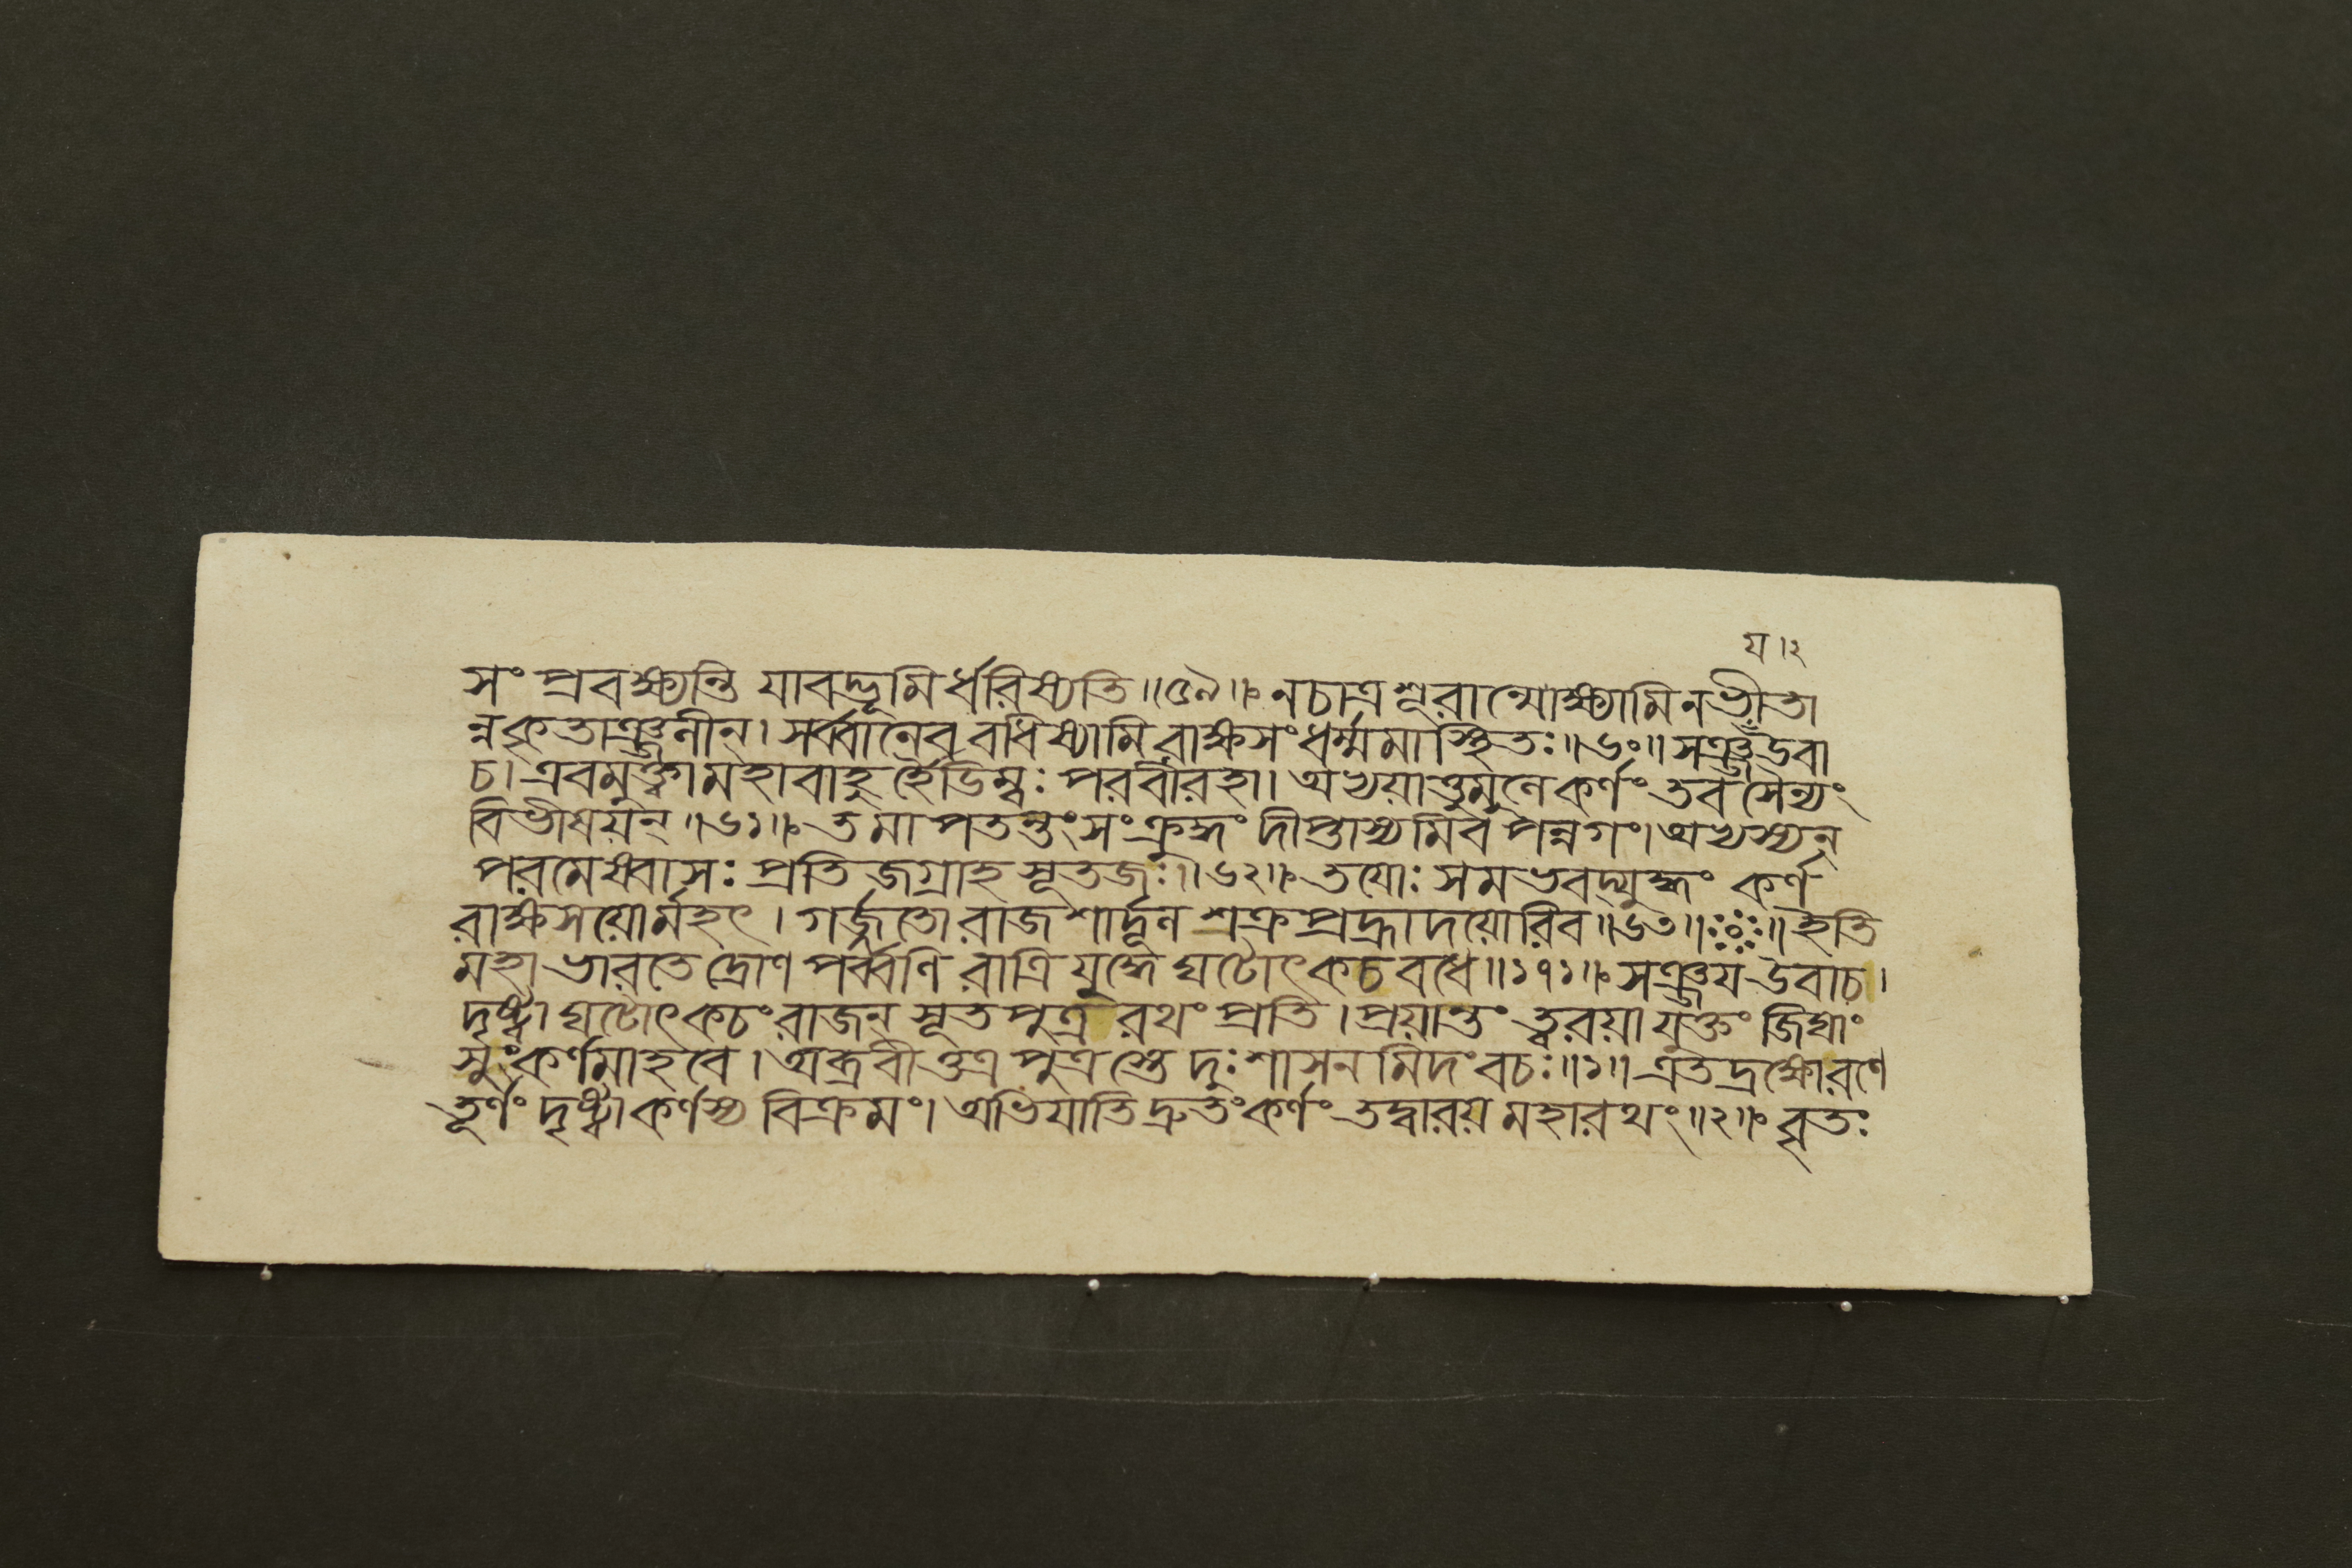 য।২
সং প্রবক্ষ্যন্তি যাবদ্ভূমির্ধরিষ্যতি॥৫৯॥ঃ নচাত্রশূরান্মোক্ষ্যামিনভীতা
ন্নকৃতাঞ্জলীন্। সর্ব্বানেব বধিষ্যামি রাক্ষসং ধর্ম্মমাস্থিতঃ॥৬০॥ সঞ্জয়ঁউবা
চ। এবমুক্ত্বা মহাবাহুর্হৈডিম্বঃ পরবীরহা। অভ্যয়াত্তুমুলে কর্ণং তব সৈন্যং
বিভীষয়ন্॥৬১॥ঃ তমাপতন্তং সংক্রুদ্ধং দীপ্তাস্যমিব পন্নগং। অভ্যস্যন্
পরমেষ্বাসঃ প্রতিজগ্রাহ সূতজঃ॥৬২॥ঃ তয়োঃ সমভবদ্যুদ্ধং কর্ণ
রাক্ষসয়োর্মহৎ। গর্জ্জতো রাজশার্দ্দূল শক্রপ্রহ্রাদয়োরিব॥৬৩॥ঃ০ঃ॥ ইতি
মহাভারতে দ্রোণপর্ব্বণি রাত্রিযুদ্ধে ঘটোৎকচবধে॥১৭১॥ঃ সঞ্জয় উবাচ।
দৃষ্ট্বা ঘটোৎকচং রাজন্ সূতপুত্র রথং প্রতি। প্রয়ান্তং ত্বরয়া যুক্তং জিঘাং
সুং কর্ণমাহবে। অব্রবীত্তত্র পুত্রস্তে দুঃশাসনমিদং বচঃ॥১॥ এতদ্রক্ষোরণে
তূর্ণং দৃষ্ট্বা কর্ণস্য বিক্রমং। অভিযাতি দ্রুতং কর্ণং তদ্বারয় মহারথং॥২॥ঃ বৃতঃ